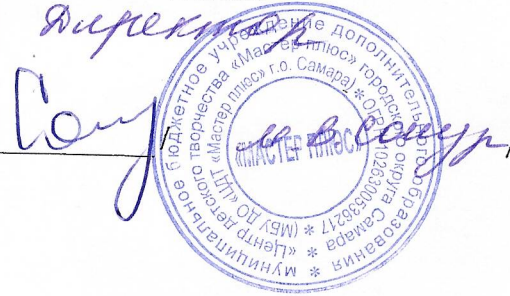 Директор
муниципальное бюджетное учреждение дополнительного образования *
«Центр детского творчества «Мастер плюс» городского округа Самара *
(МБУ ДО «ЦДТ «Мастер плюс» г.о. Самара) * ОГРН 1026300536217 *
«МАСТЕР ПЛЮС»